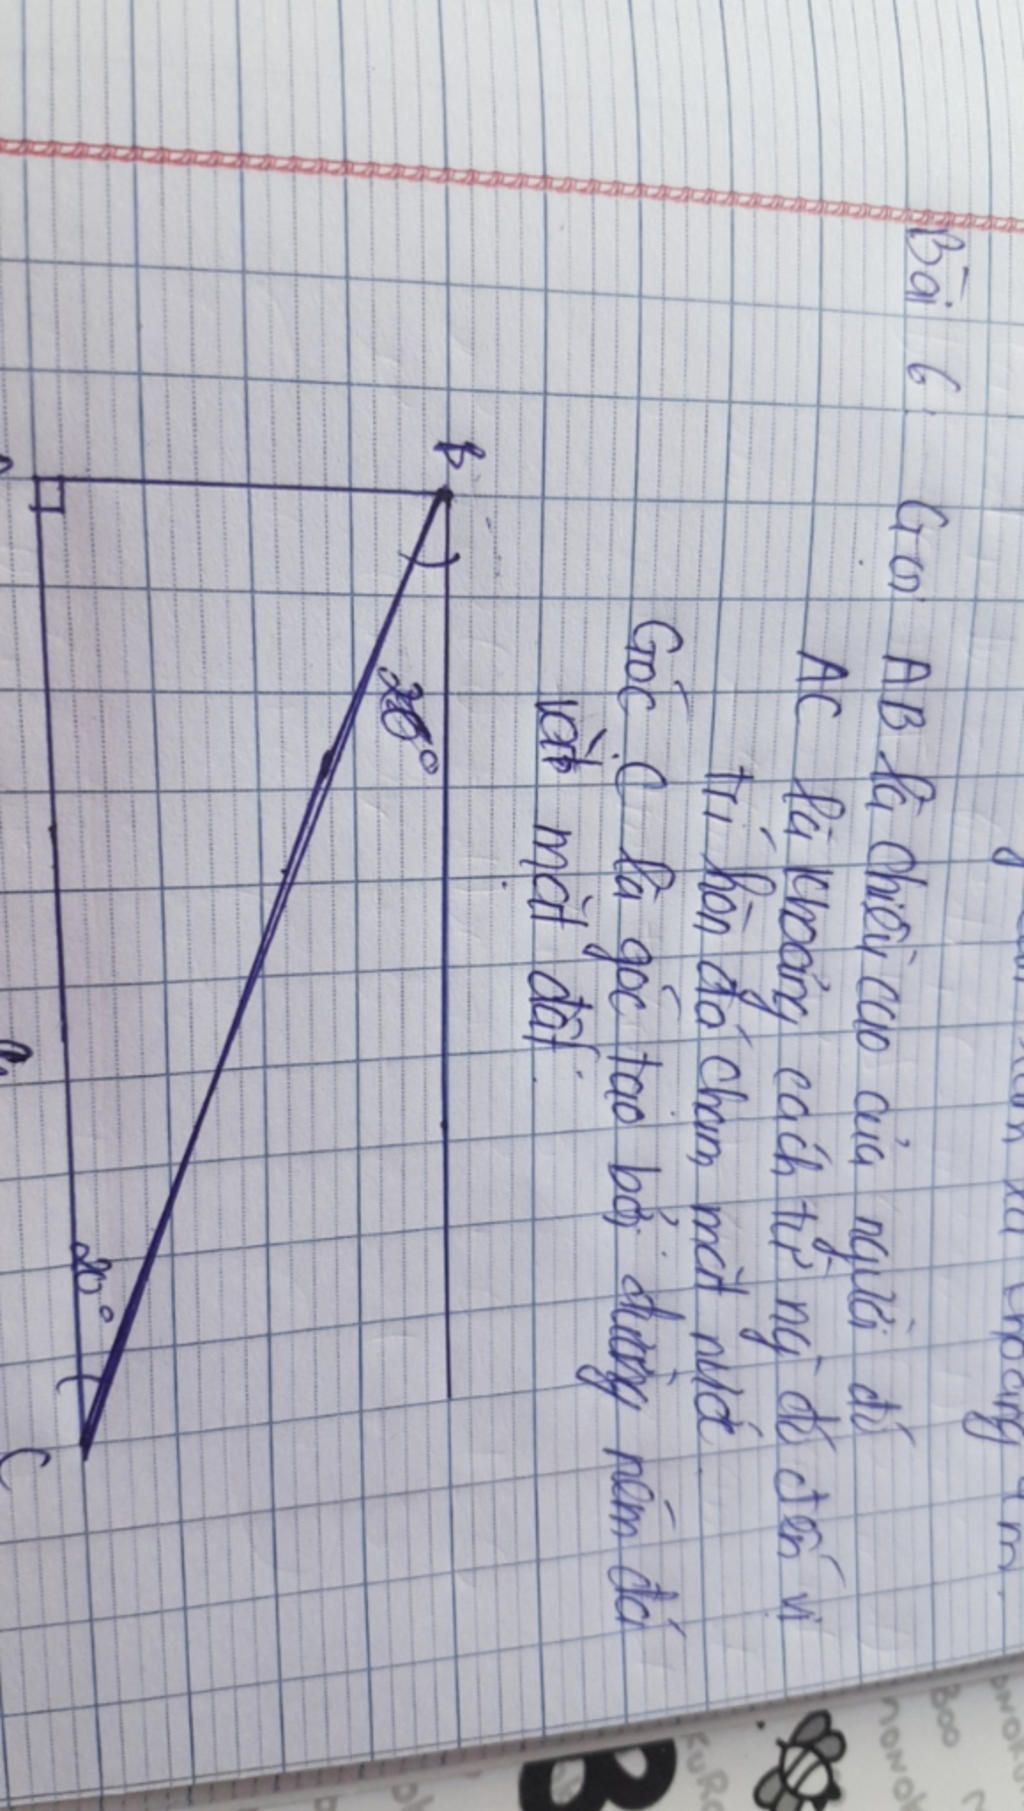 Bài 6: Gọi AB là chiều cao của người đó
AC là khoảng cách từ ng đó đến vị
trí hòn đá chạm mặt nước.
Góc C là góc tạo bởi đường ném đá
và mặt đất.
B
20°
20°
C
B